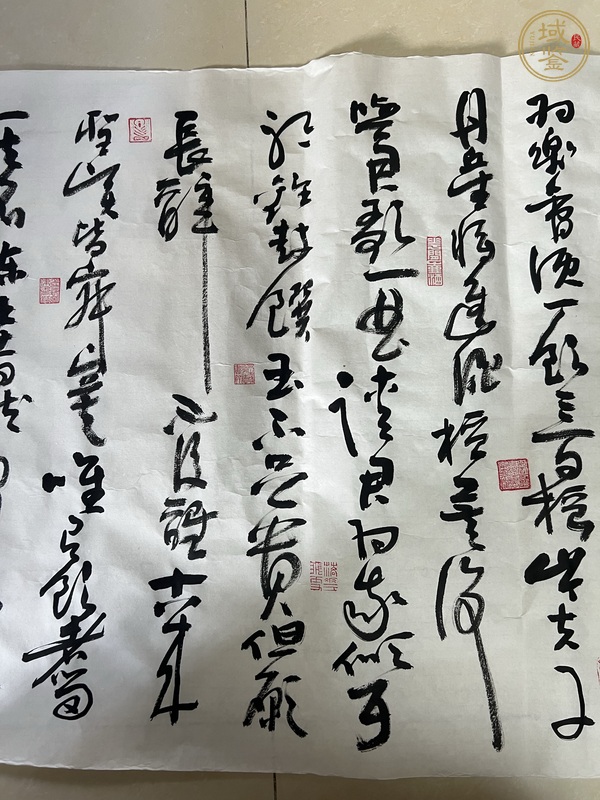 为樂會須一飲三百杯岑夫子
丹丘生將進酒杯莫停
與君歌一曲請君为我傾耳
聽鐘鼓饌玉不足貴但願
長醉不復醒古来
聖賢皆寂寞唯有飲者留
其名陳王昔
域鉴